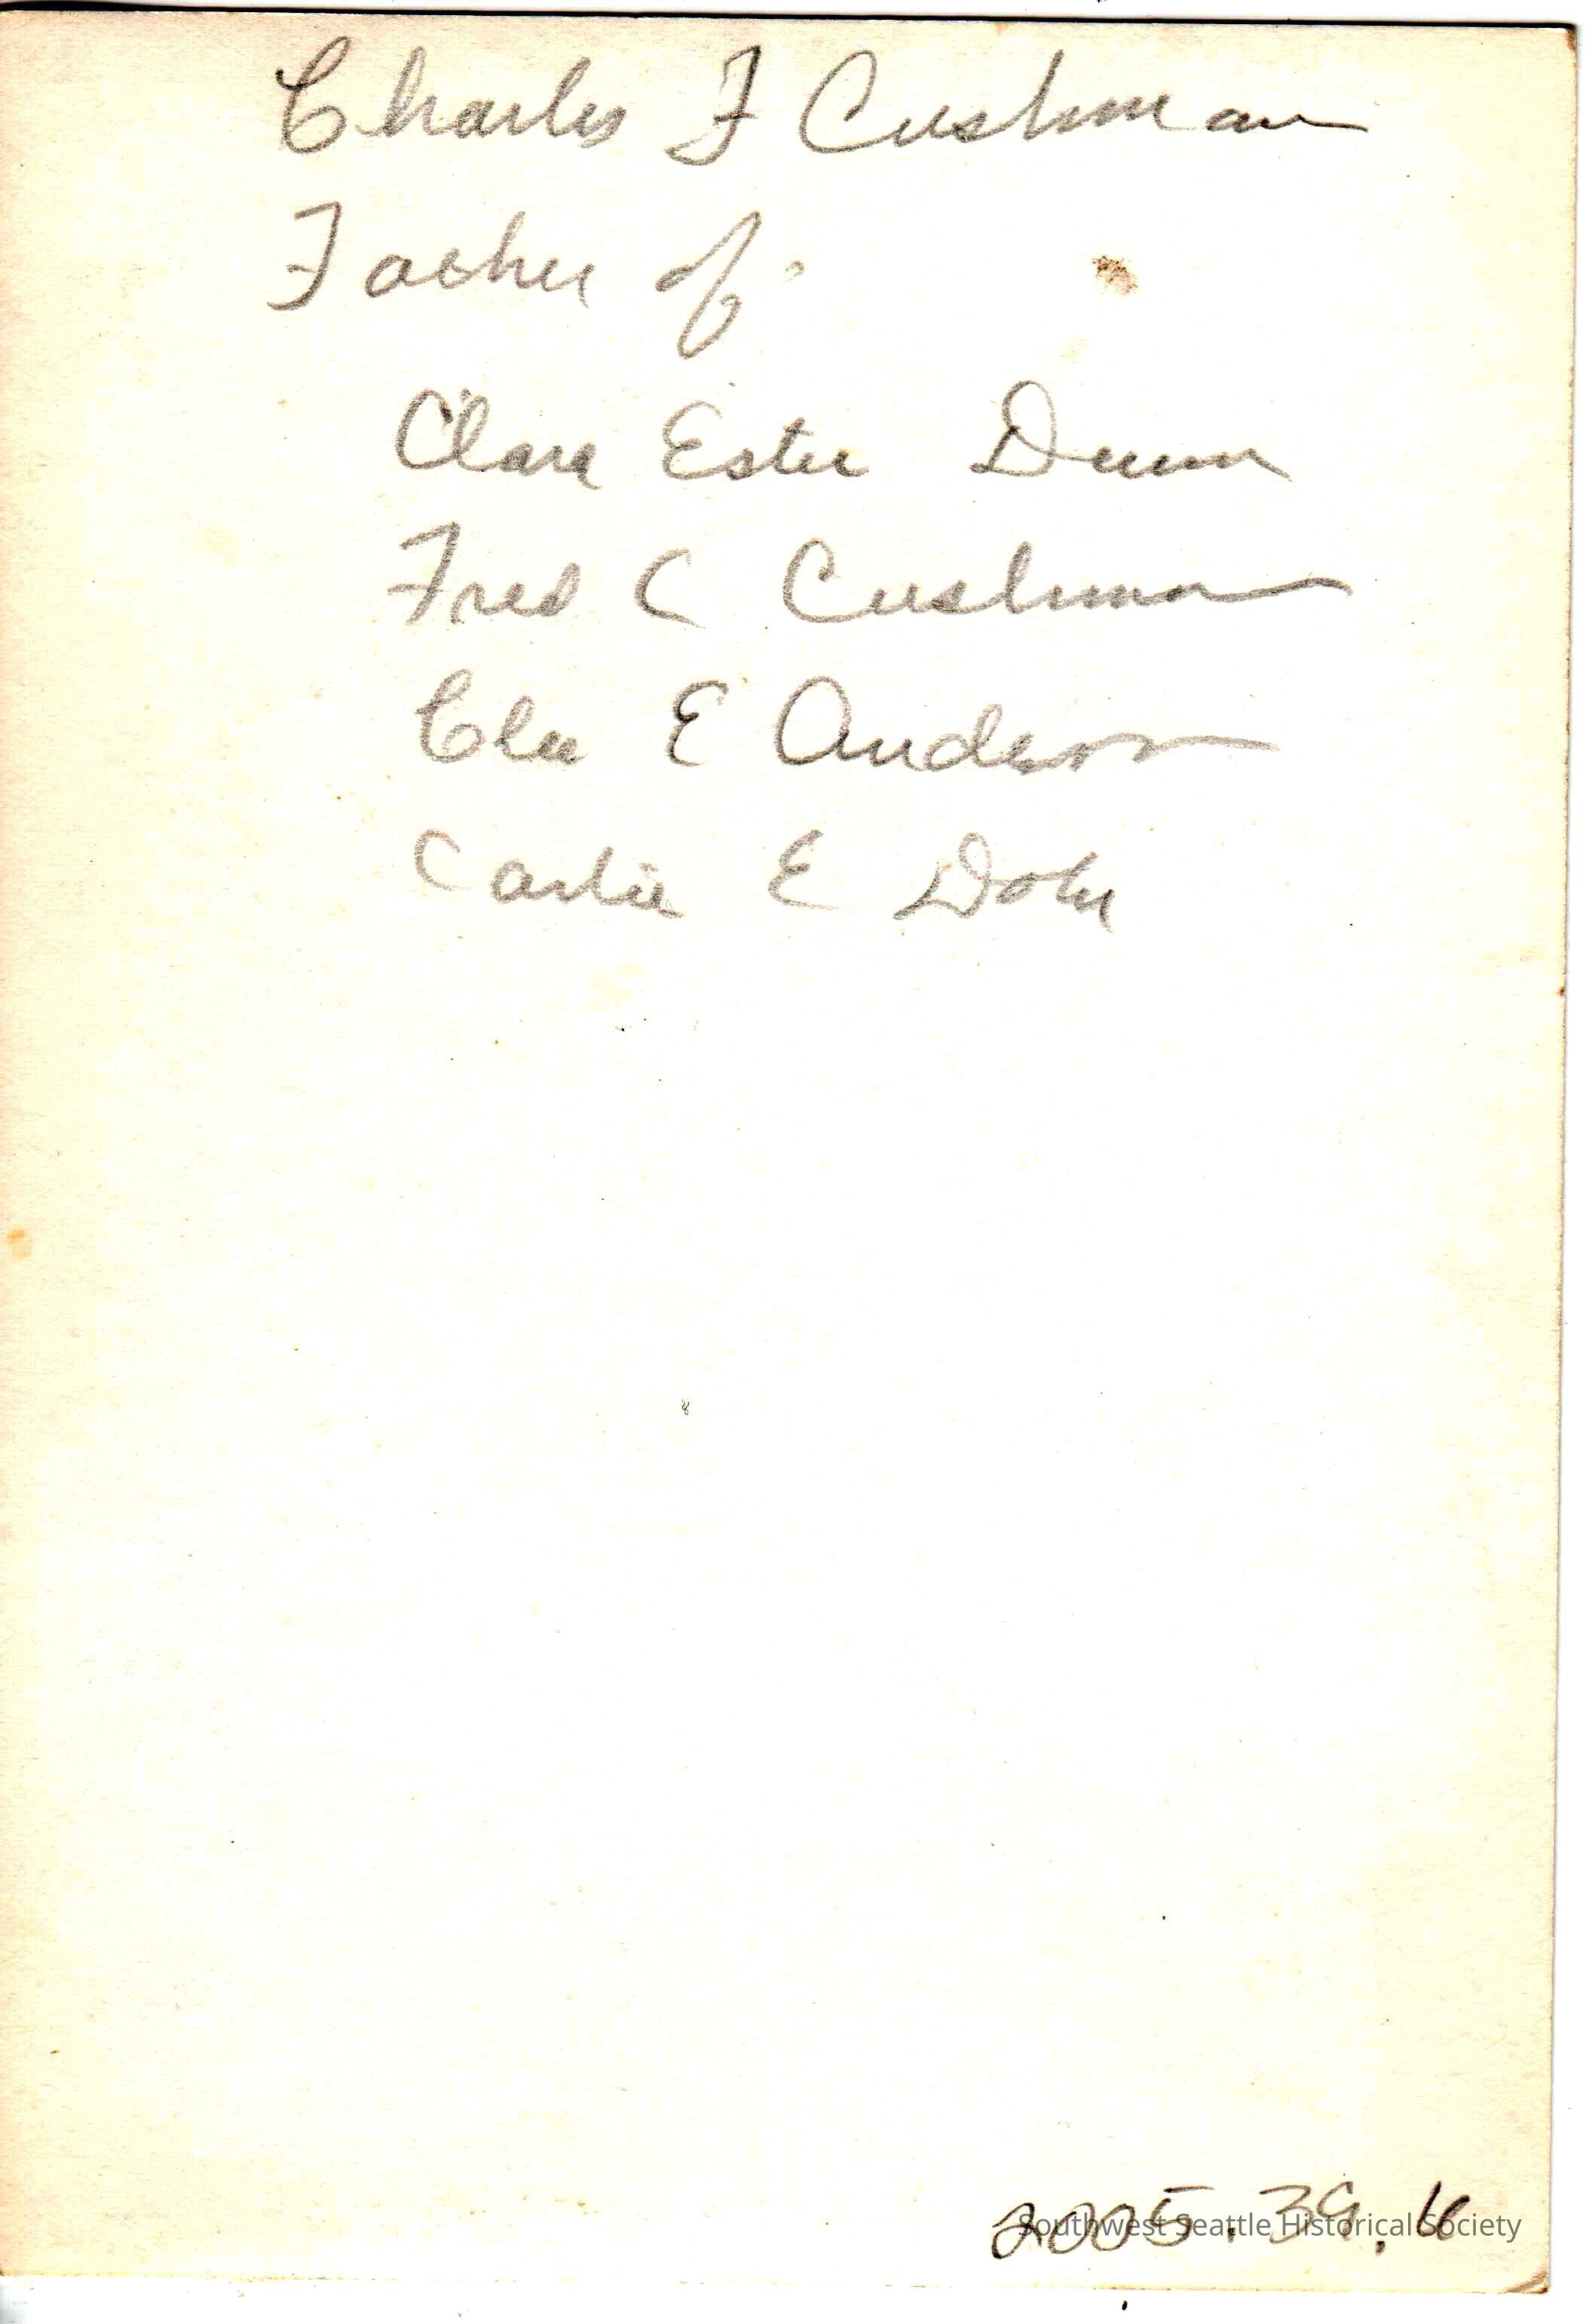 Charles F Cushman
Father of
Clara Ester Dunn
Fred C Cushman
E Anderson
E
2005.39.16
Southwest Seattle Historical Society